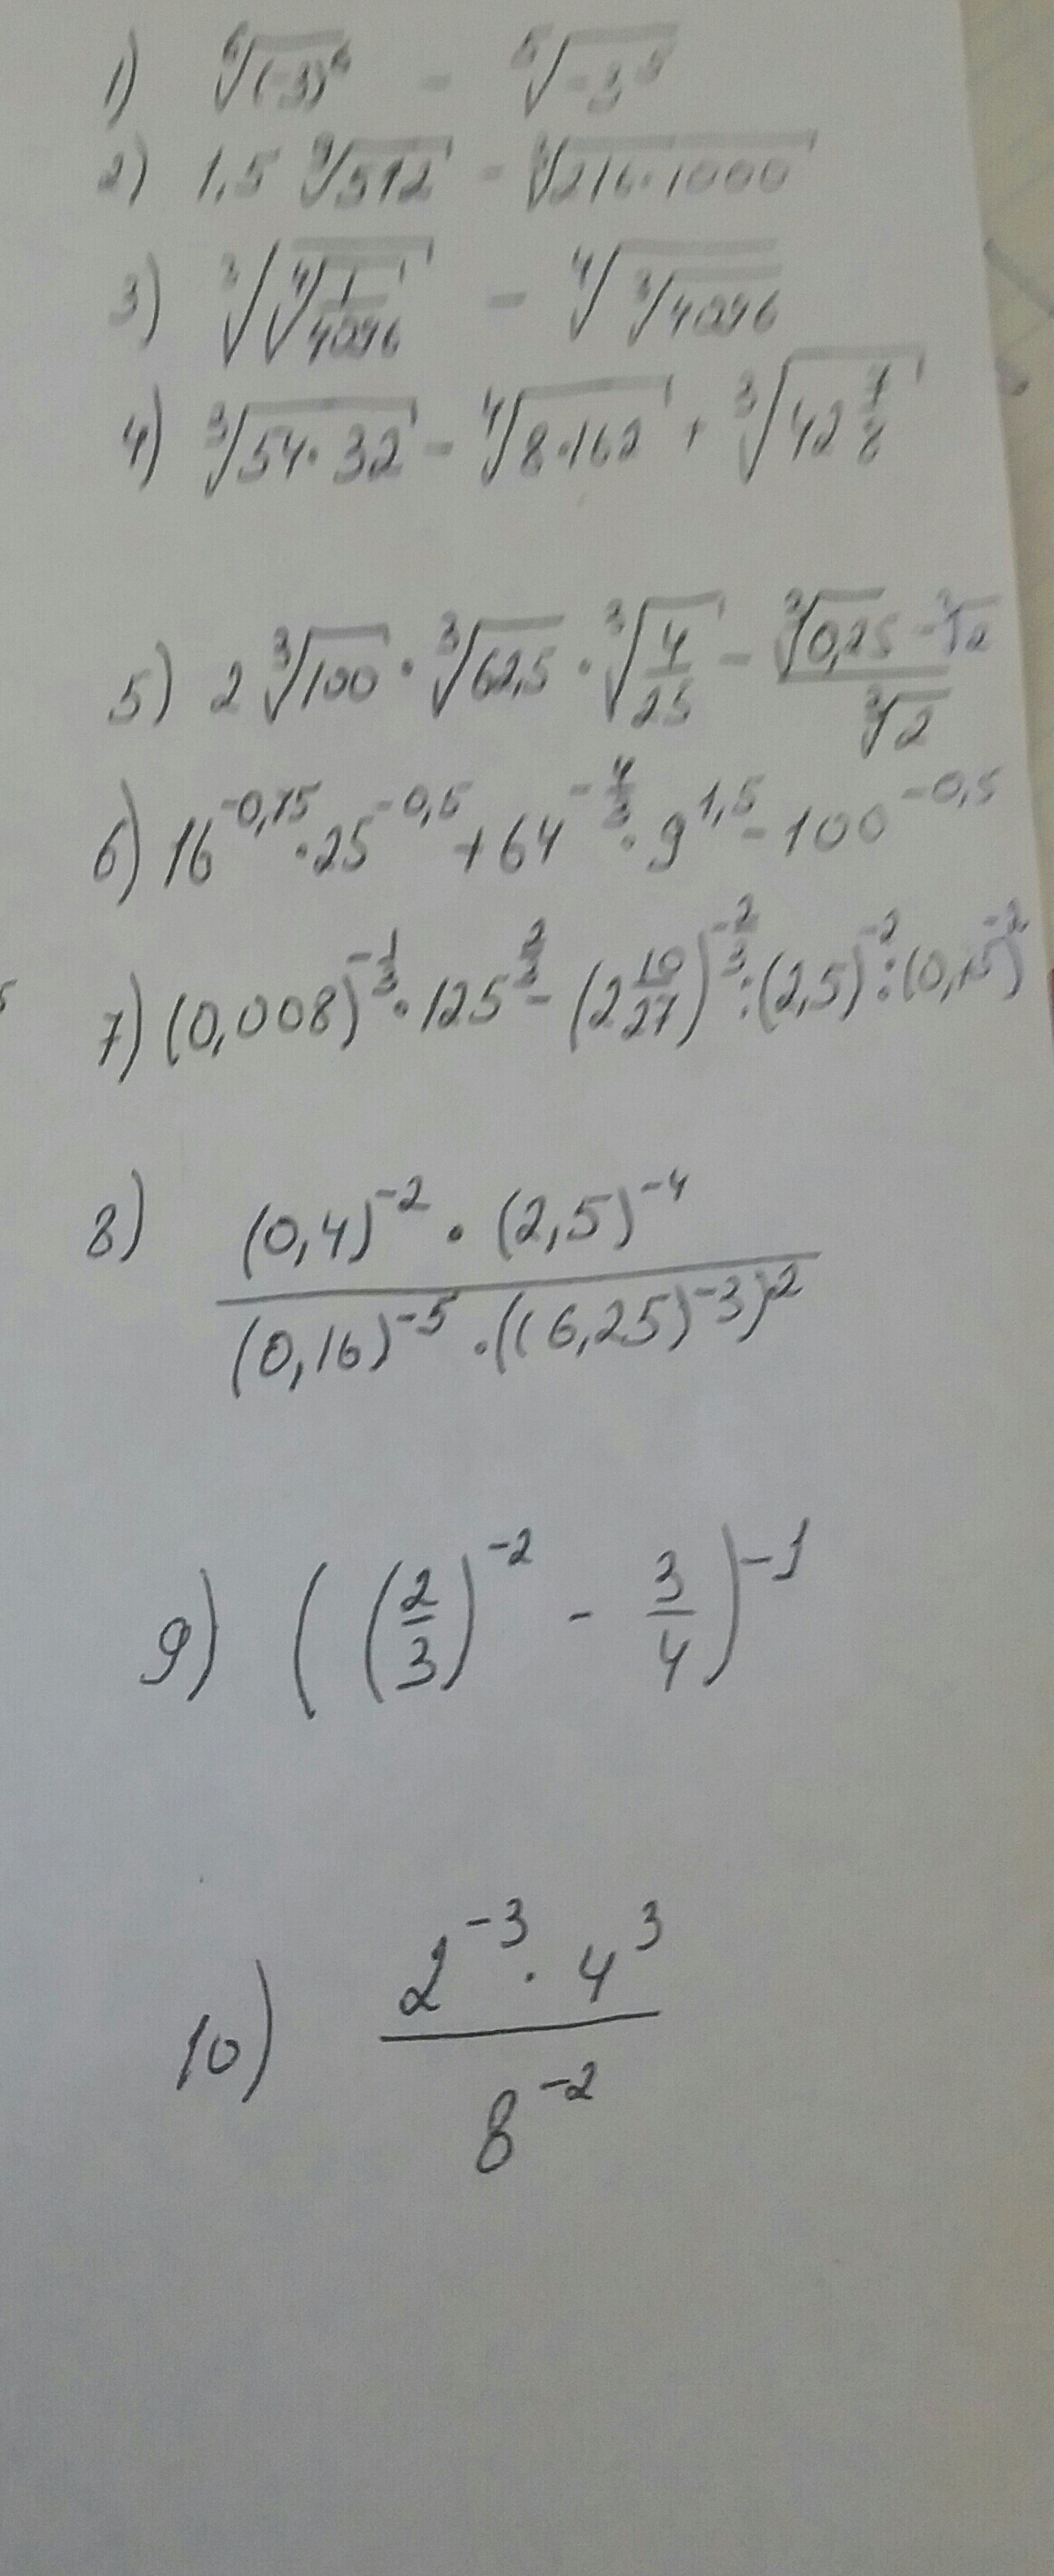 1) ⁶√(-3)⁶ - ⁵√-3⁵
2) 1,5 ⁹√512 - ³√216·1000
3) ³√⁴√1/4096 - ⁴√³√4096
4) ³√54·32 - ⁴√8·162 + ³√42 7/8
5) 2 ³√100 · ³√62,5 · ³√4/25 - (³√0,25 - ³√2)/³√2
6) 16^-0,75 · 25^-0,5 + 64^-4/3 · 9^1,5 - 100^-0,5
7) (0,008)^-1/3 · 125^2/3 - (2 10/27)^-2/3 : (2,5)^-2 : (0,15)^-2
8) (0,4)^-2 · (2,5)^-4
(0,16)^-5 · ((6,25)^-3)^2
9) ((2/3)^-2 - 3/4)^-1
10) 2^-3 · 4^3
8^-2